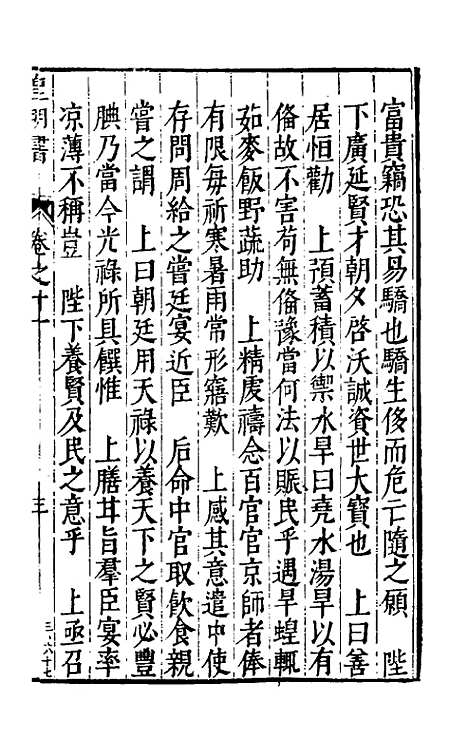 富貴竊恐其易驕也驕生侈而危亡隨之願　陛
下廣延賢才朝夕啓沃誠資世大寶也　上曰善
居恒勸　上預蓄積以禦水旱曰堯水湯旱以有
偹故不害苟無偹豫當何法以賑民乎遇旱蝗輒
茹麥飯野蔬助　上精虔禱念百官官京師者俸
有限每祈寒暑雨常形寤歎　上感其意遣中使
存問周給之嘗廷宴近臣　后命中官取飲食親
嘗之謂　上曰朝廷用天祿以養天下之賢必豐
腆乃當今光祿所具饌惟　上膳甘旨羣臣宴率
凉薄不稱豈　陛下養賢及民之意乎　上亟召
皇明書　卷之十一　三
三·六十七